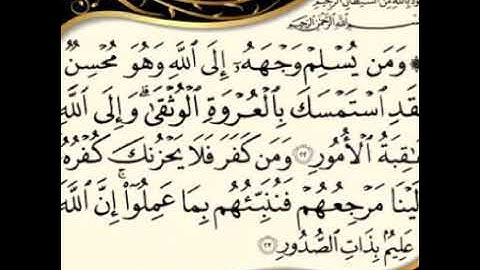 بِاللَّهِ مِنَ الشَّيْطَانِ الرَّجِيمِ
بِسْمِ اللَّهِ الرَّحْمَنِ الرَّحِيمِ
وَمَن يُسْلِمْ وَجْهَهُۥٓ إِلَى ٱللَّهِ وَهُوَ مُحْسِنٌ
قَدِ ٱسْتَمْسَكَ بِٱلْعُرْوَةِ ٱلْوُثْقَىٰ ۗ وَإِلَى ٱللَّهِ
عَٰقِبَةُ ٱلْأُمُورِ ٢٢ وَمَن كَفَرَ فَلَا يَحْزُنكَ كُفْرُهُۥٓ
لَيْنَا مَرْجِعُهُمْ فَنُنَبِّئُهُم بِمَا عَمِلُوٓا۟ ۚ إِنَّ ٱللَّهَ
عَلِيمٌۢ بِذَاتِ ٱلصُّدُورِ ٢٣